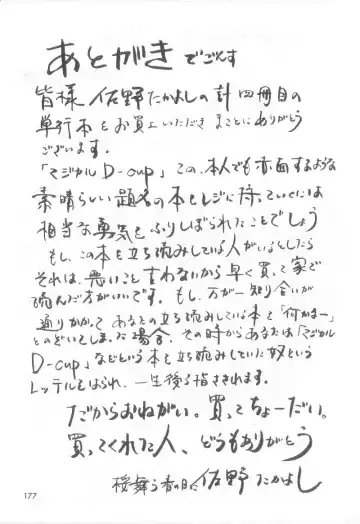 あとがきでごんす
皆様 佐野たかよしの計四冊目の
単行本をお買上いただきまことにありがとう
ございます。
「マジカルD-cup」この、本人でも赤面するような
素晴らしい題名の本をレジに持っていくには
相当な勇気をふりしぼられたことでしょう
もし、この本を立ち読みしている人がいるとしたら
それは、悪いこと言わないから早く買って家で
読んだ方がいいです。もし、万が一知り合いが
通りかかって あなたの立ち読みしている本を「何かなー」
とのぞいてしまった場合、その時からあなたは「マジカル
D-cup」などという本を立ち読みしていた奴という
レッテルをはられ、一生後ろ指さされます。
だからおねがい。買ってちょーだい。
買ってくれた人、どうもありがとう
桜舞う春の日に 佐野たかよし
177